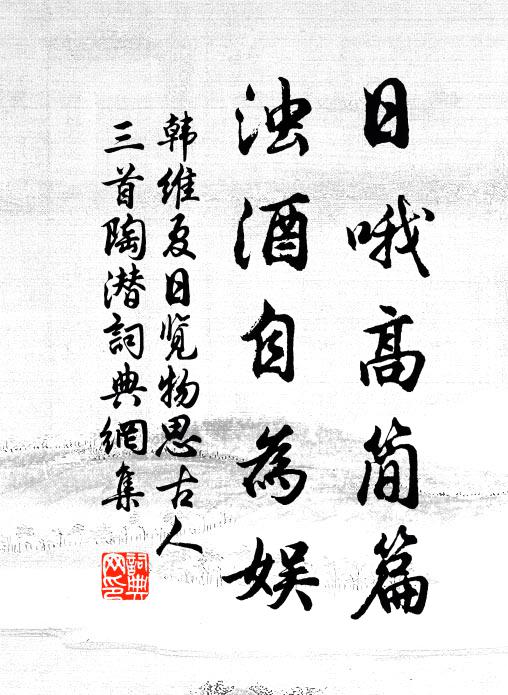 日哦高简篇
浊酒自為娱
韩维夏日览物思古人
三首陶潜詞典網集
詞典
网印